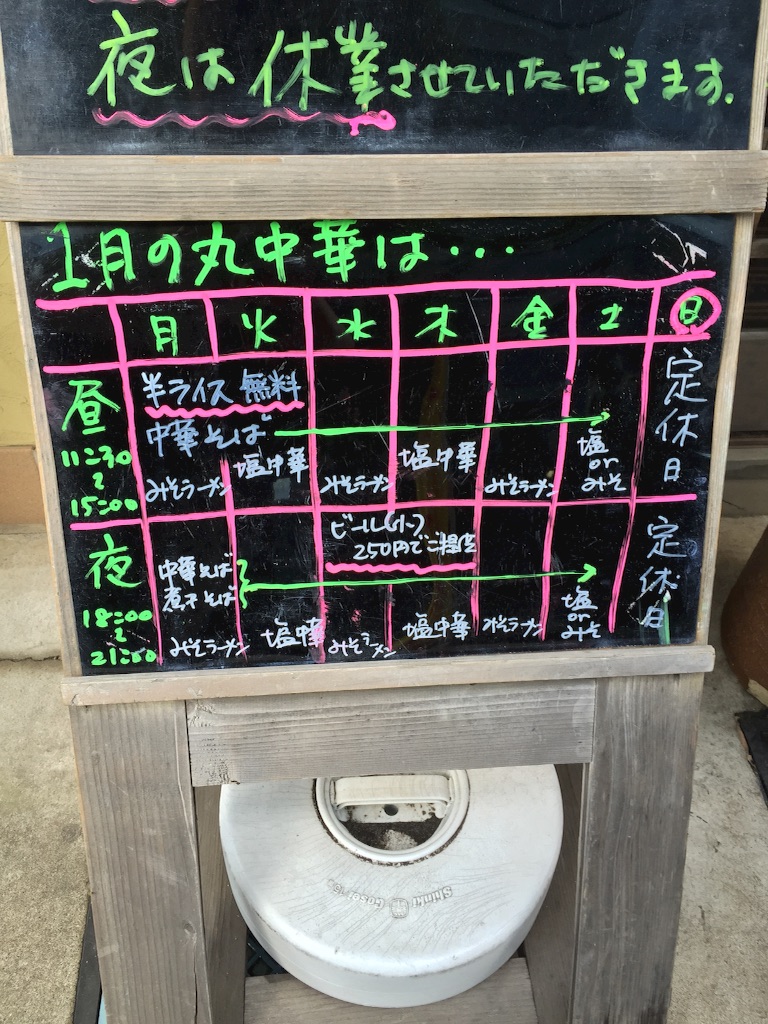 夜は休業させていただきます.
1月の丸中華は・・・
月 火 水 木 金 土 日
昼
11:30
〜
15:00
半ライス 無料
中華そば
みそラーメン
塩中華
みそラーメン
塩中華
みそラーメン
塩
or
みそ
定休日
夜
18:00
〜
21:00
中華そば
煮干そば
ビール(小)
250円でご提供
みそラーメン
塩中華
みそラーメン
塩中華
みそラーメン
塩
or
みそ
定休日
Shinki Gosei